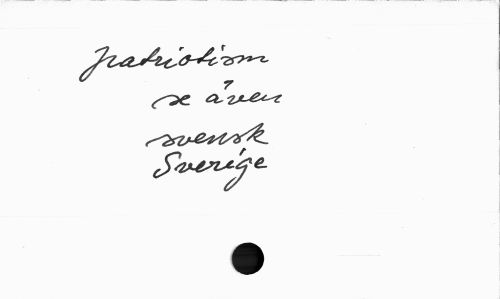 patriotism
se även
svensk
Sverige